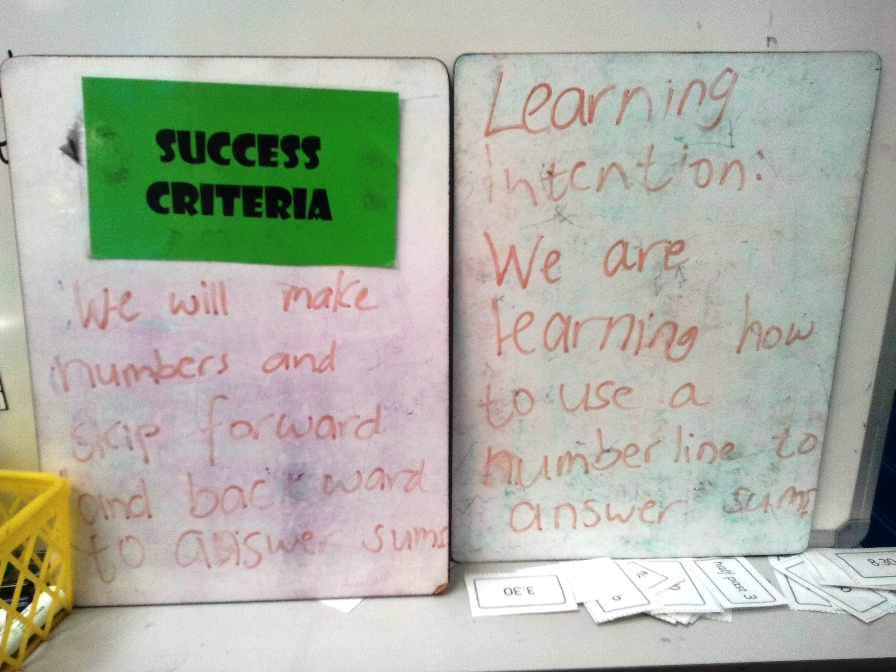 SUCCESS
CRITERIA
We will make
numbers and
skip forward
and backward
to answer sums
Learning
Intention:
We are
learning how
to use a
number line to
answer sums
3.30
half past 3
8.30